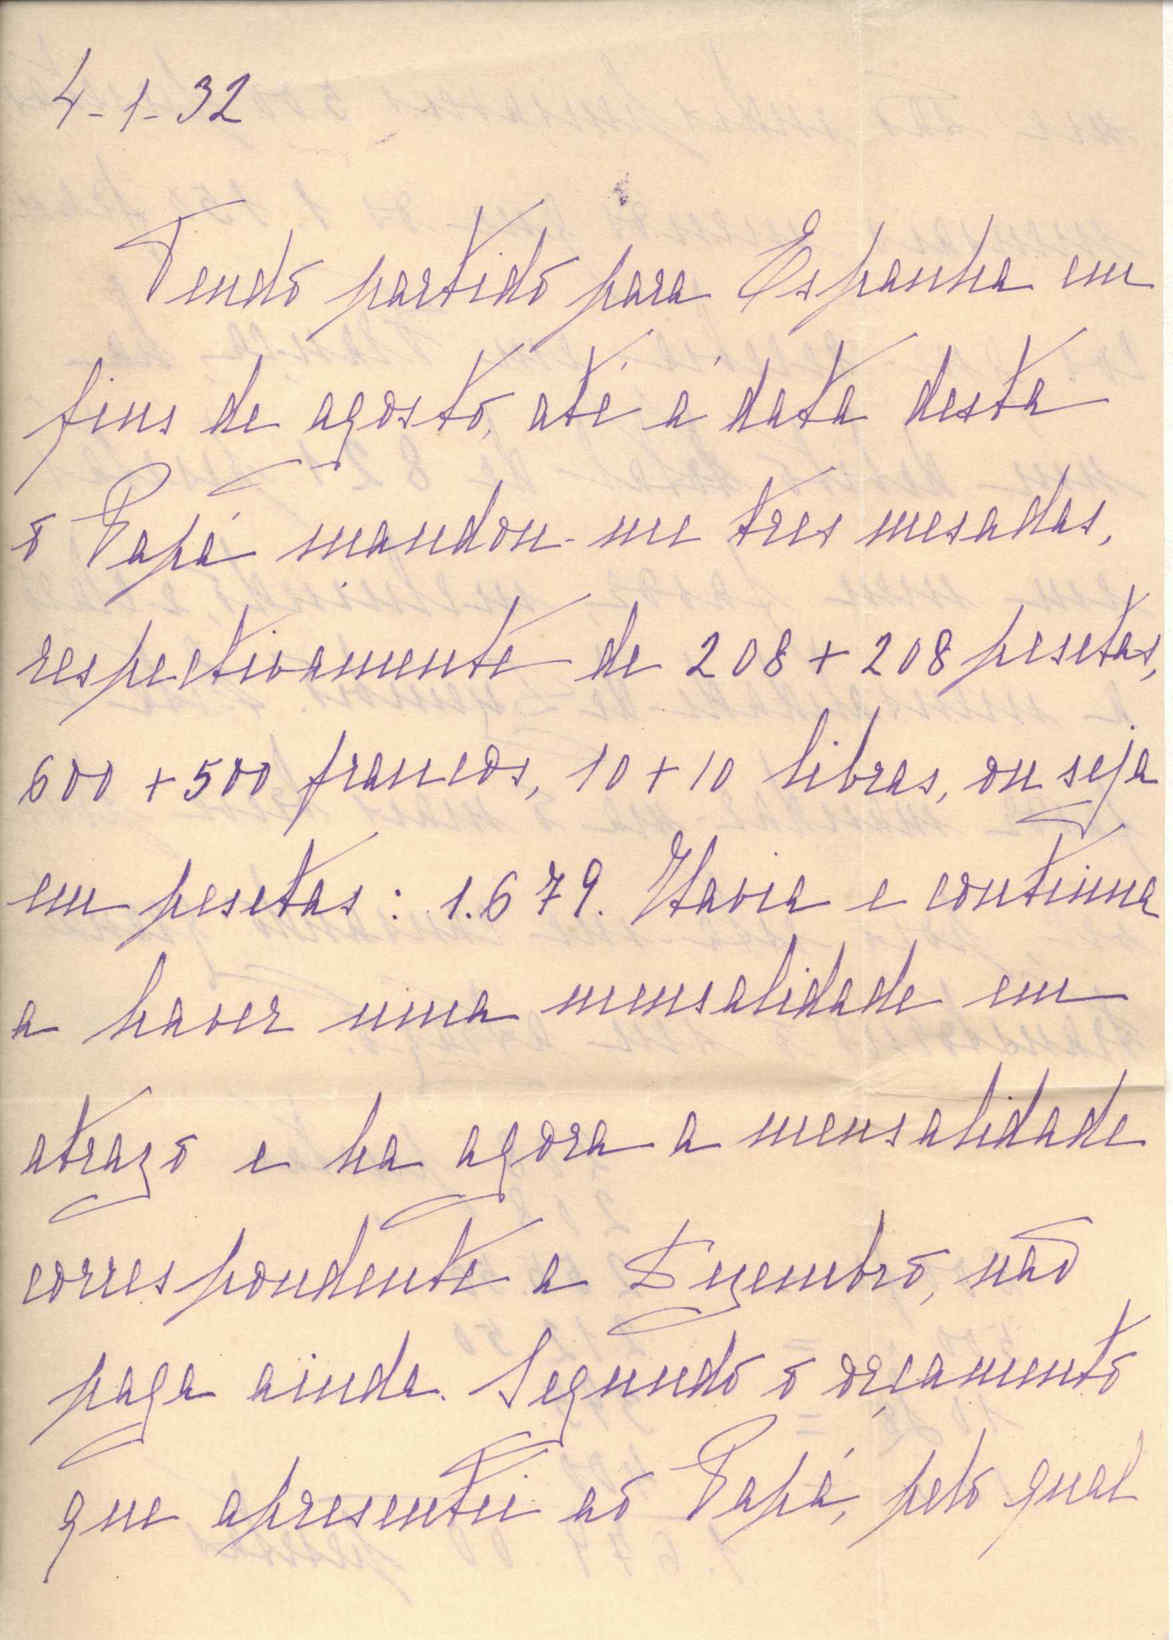 4-1-32
Tendo partido para Espanha em
fins de agosto, até á data desta
o Papá mandou-me tres mesadas,
respectivamente de 208 + 208 pesetas,
600 + 500 francos, 10 + 10 libras, ou seja
em pesetas : 1.679. Havia e continua
a haver uma mensalidade em
atrazo e ha agora a mensalidade
correspondente a Dezembro, não
paga ainda. Segundo o orçamento
que apresentei ao Papá, pelo qual